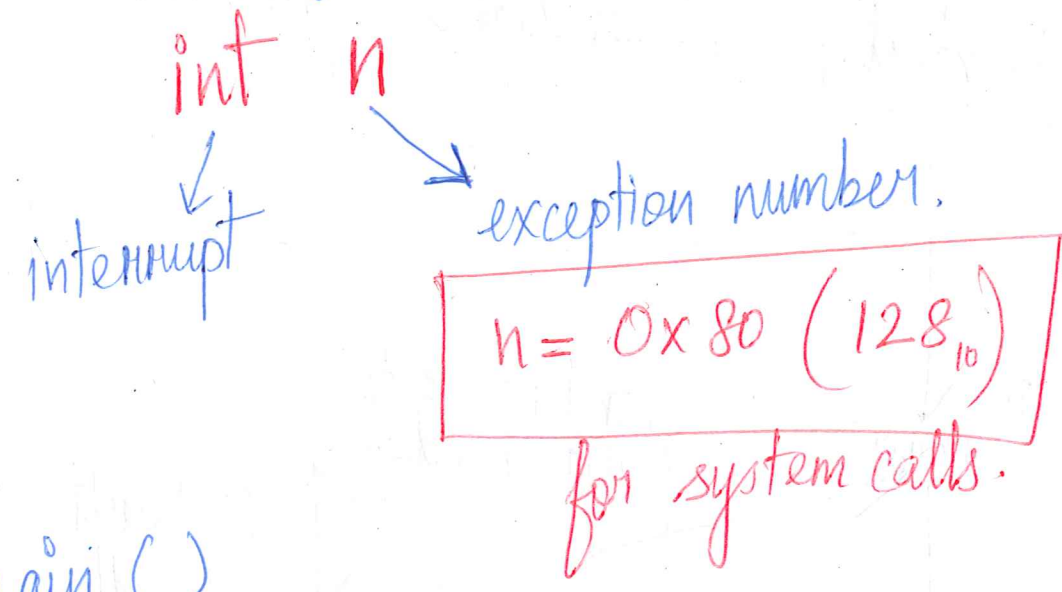 int n
interrupt
exception number.
n = 0x80 (128₁₀)
for system calls.
ain ()